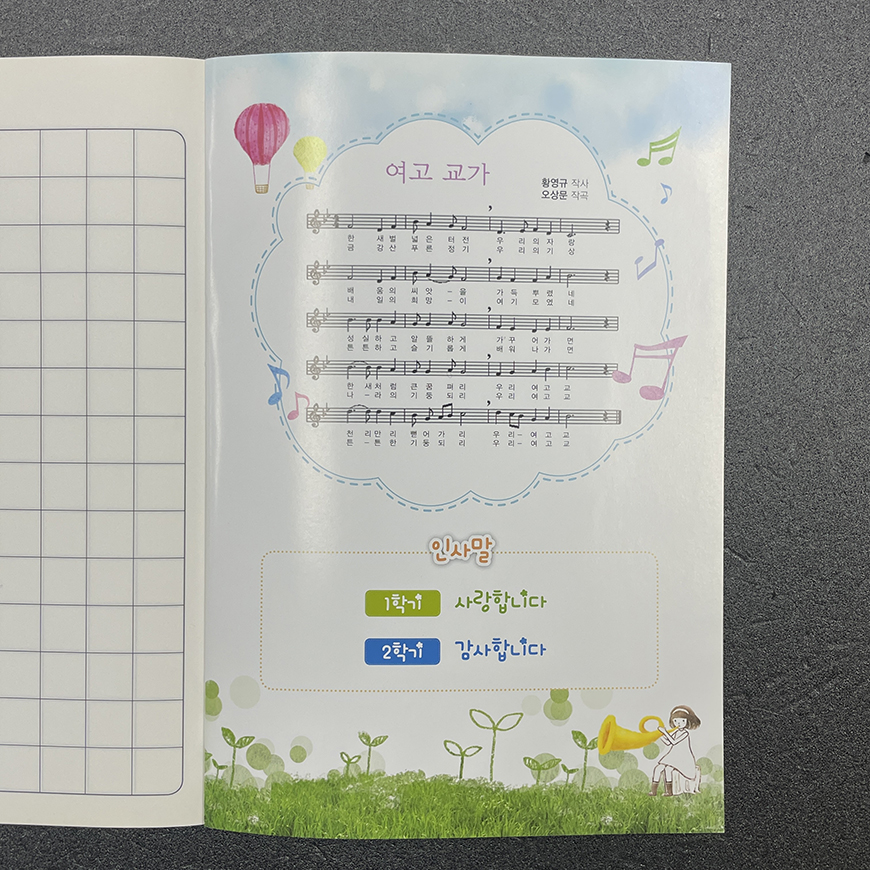 여고 교가
황영규 작사
오상문 작곡
한 새벌 넓은 터전 우 리의자 랑
금 강산 푸른 정기 우 리의기 상
배 움의 씨 앗-을 가득 뿌렸네
내 일의 희망-이 여기 모였네
성실하고 알뜰하게 가꾸어가면
튼튼하고 슬기롭게 배워나가면
한 새처럼 큰꿈펴리 우리여고교
나-라의 기둥되리 우리여고교
천 리만리 뻗어가리 우리-여고교
튼-튼한 기둥되리 우리-여고교
인사말
1학기 사랑합니다
2학기 감사합니다